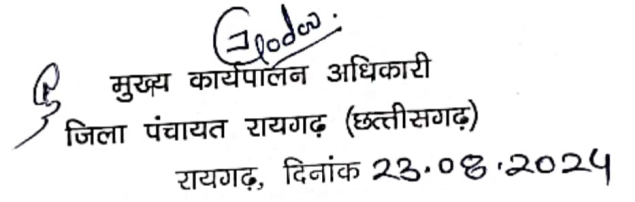 मुख्य कार्यपालन अधिकारी
जिला पंचायत रायगढ़ (छत्तीसगढ़)
रायगढ़, दिनांक 23.08.2024